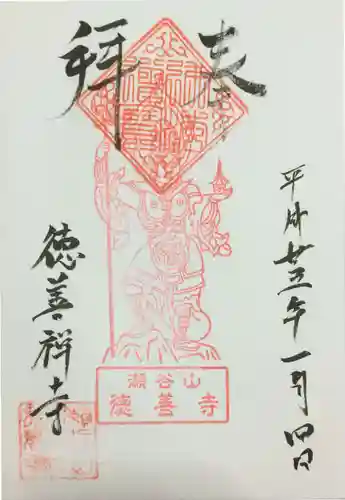 奉拝
平成廿三年一月四日
瀬谷山
徳善寺
徳善祥寺